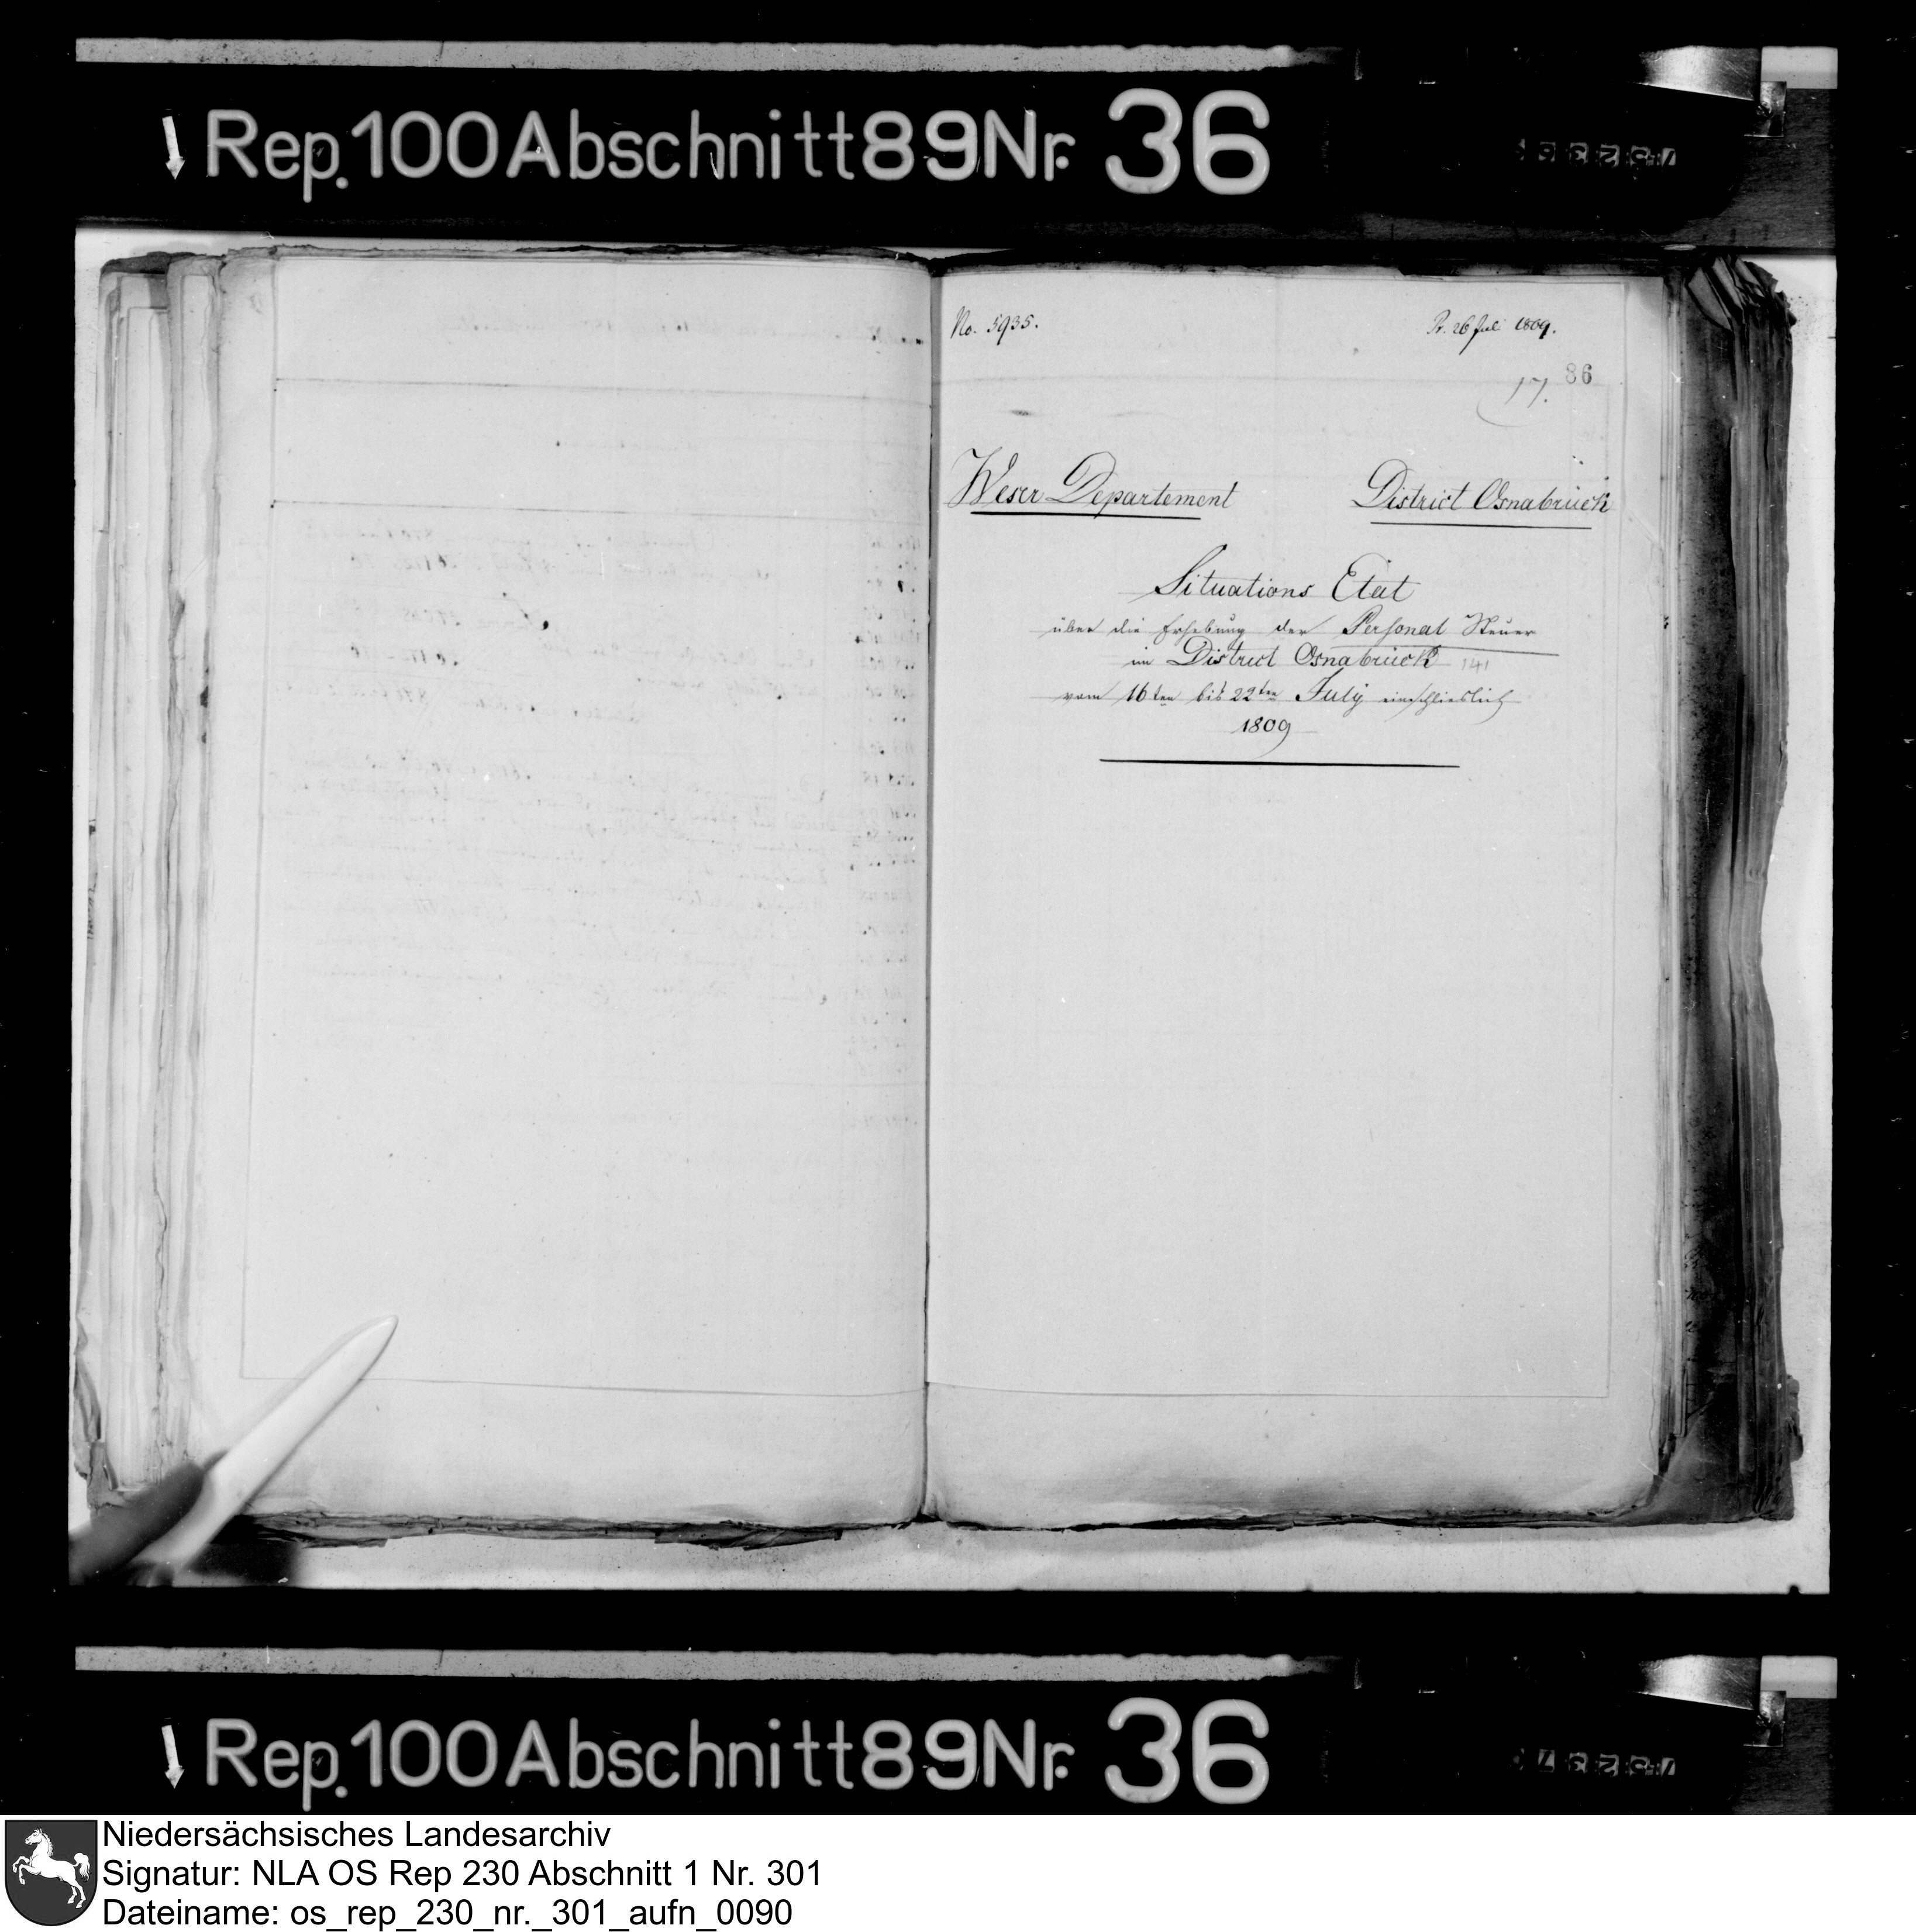 Rep. 100 Abschnitt 89 Nr. 36
No. 5935.
Pr. 26 Juli 1809.
86
17.
Weser Departement
District Osnabrück
Situations Etat
über die Erhebung der Personal Steuer
im District Osnabrück 141
vom 16ten bis 22ten July einschlieslich
1809
Rep. 100 Abschnitt 89 Nr. 36
Niedersächsisches Landesarchiv
Signatur: NLA OS Rep 230 Abschnitt 1 Nr. 301
Dateiname: os_rep_230_nr._301_aufn_0090